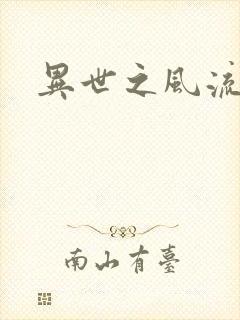 異世之風流
南山有臺